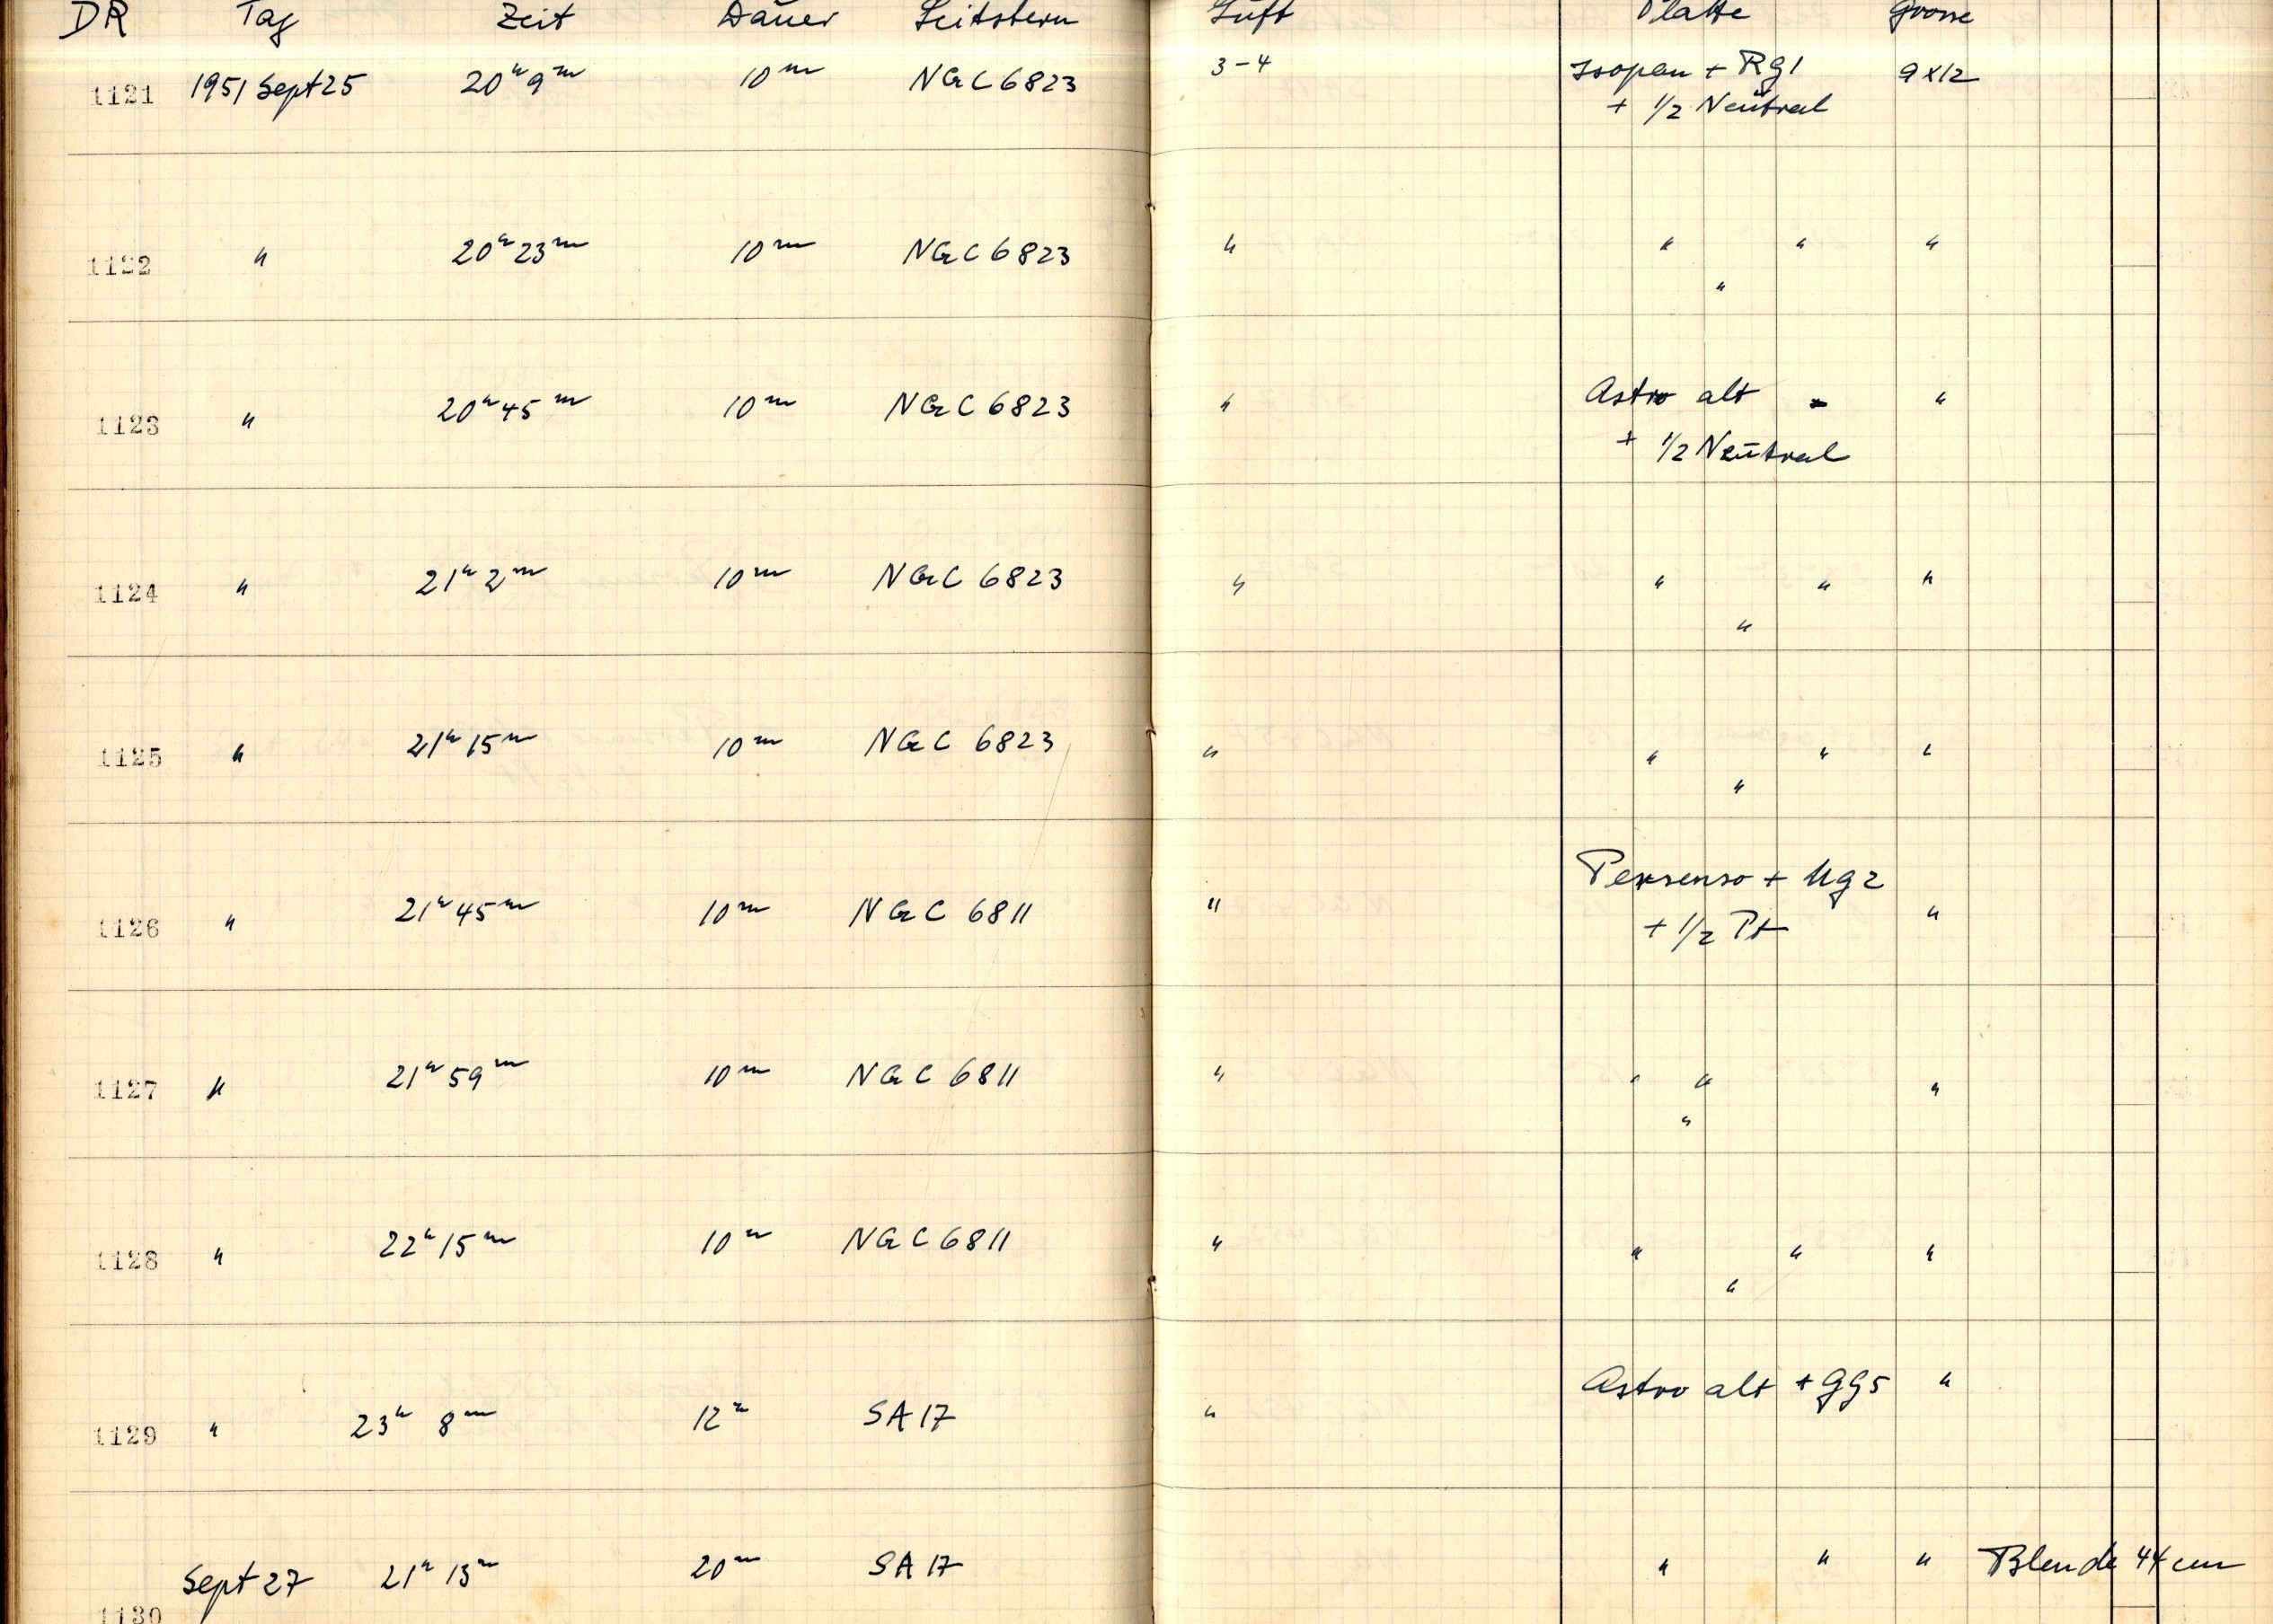 DR Tag Zeit Dauer Leitstern Luft Platte Grösse
1121 1951 Sept 25 20h 9m 10m NGC 6823 3-4 Isopan + Rg1 9x12
+ 1/2 Neutral
1122 " 20h 23m 10m NGC 6823 " " " "
"
1123 " 20h 45m 10m NGC 6823 " Astro alt - "
+ 1/2 Neutral
1124 " 21h 2m 10m NGC 6823 " " " "
"
1125 " 21h 15m 10m NGC 6823 " " " "
"
Persenso + Ug2
1126 " 21h 45m 10m NGC 6811 " + 1/2 Pt "
1127 " 21h 59m 10m NGC 6811 " " " "
"
1128 " 22h 15m 10m NGC 6811 " " " "
"
1129 " 23h 8m 12m SA 17 " Astro alt + GG5 "
1130 Sept 27 21h 13m 20m SA 17 " " " Blende 44 cm